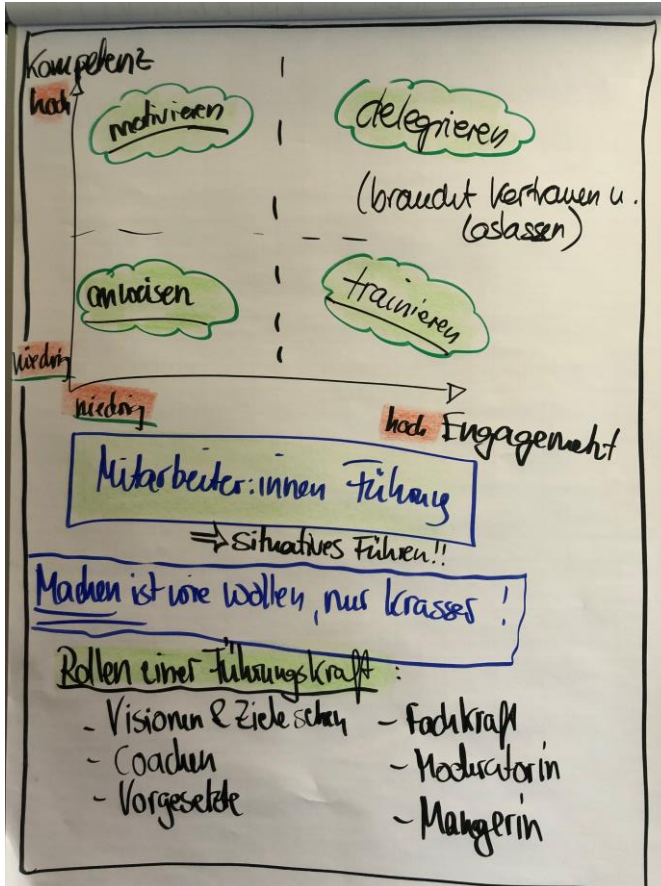 Kompetenz
hoch
motivieren
delegieren
(braucht Vertrauen u.
loslassen)
anweisen
trainieren
niedrig
niedrig
hoch Engagement
Mitarbeiter:innen Führung
⇒ situatives Führen!!
Machen ist wie wollen, nur krasser !
Rollen einer Führungskraft :
- Visionen & Ziele sehen
- Fachkraft
- Coachen
- Moderatorin
- Vorgesetzte
- Mangerin